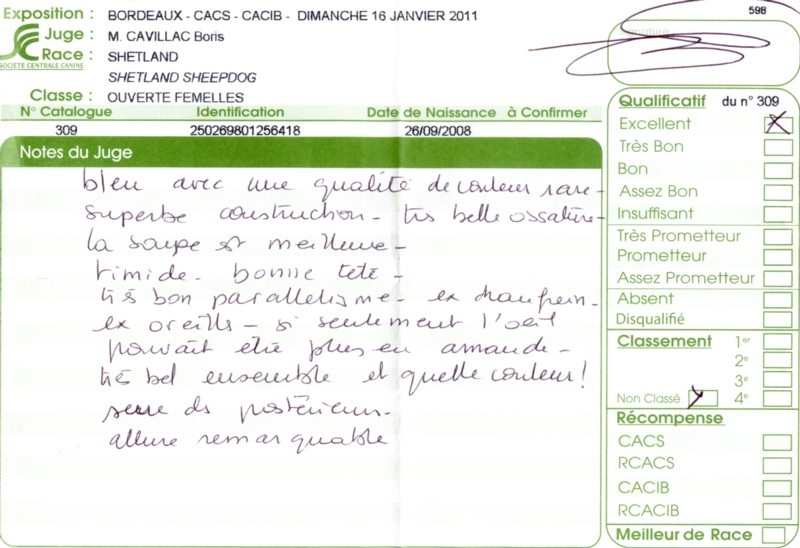 Exposition : BORDEAUX - CACS - CACIB - DIMANCHE 16 JANVIER 2011
Juge : M. CAVILLAC Boris
Race : SHETLAND
SOCIETE CENTRALE CANINE
SHETLAND SHEEPDOG
Classe : OUVERTE FEMELLES
N° Catalogue Identification Date de Naissance à Confirmer
309 250269801256418 26/09/2008
Notes du Juge
bleu avec une qualité de couleur rare -
superbe construction - très belle ossature -
la est meilleure -
timide - bonne tête -
très bon parallélisme - ex chanfrein -
ex oreills - si seulement l'oeil
pouvait être plus en amande -
très bel ensemble et quelle couleur !
serre ds postérieurs -
allure remarquable
598
Signature
Qualificatif du n° 309
Excellent X
Très Bon
Bon
Assez Bon
Insuffisant
Très Prometteur
Prometteur
Assez Prometteur
Absent
Disqualifié
Classement 1er
2e
3e
Non Classé X 4e
Récompense
CACS
RCACS
CACIB
RCACIB
Meilleur de Race